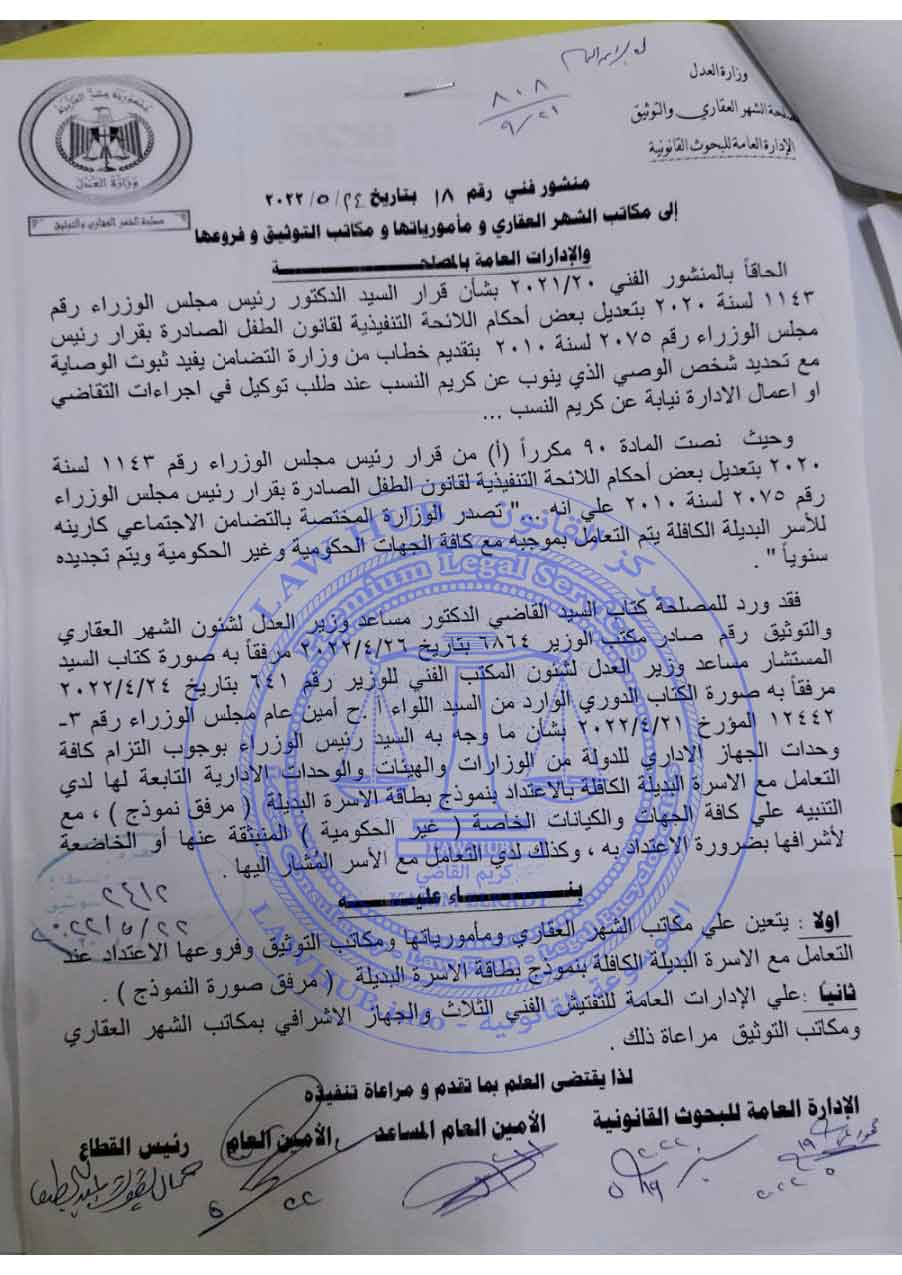 وزارة العدل
مصلحة الشهر العقاري والتوثيق
الإدارة العامة للبحوث القانونية
٨٠٨
٩/٢١
جمهورية مصر العربية
وزارة العدل
مصلحة الشهر العقاري والتوثيق
منشور فني رقم ١٨ بتاريخ ٢٤ / ٥ / ٢٠٢٢
إلى مكاتب الشهر العقاري و مأمورياتها و مكاتب التوثيق و فروعها
والإدارات العامة بالمصلحـــــــــــة
الحاقاً بالمنشور الفني ٢٠٢١/٢٠ بشأن قرار السيد الدكتور رئيس مجلس الوزراء رقم
١١٤٣ لسنة ٢٠٢٠ بتعديل بعض أحكام اللائحة التنفيذية لقانون الطفل الصادرة بقرار رئيس
مجلس الوزراء رقم ٢٠٧٥ لسنة ٢٠١٠ بتقديم خطاب من وزارة التضامن يفيد ثبوت الوصاية
مع تحديد شخص الوصي الذي ينوب عن كريم النسب عند طلب توكيل في اجراءات التقاضي
او اعمال الادارة نيابة عن كريم النسب ...
وحيث نصت المادة ٩٠ مكرراً (أ) من قرار رئيس مجلس الوزراء رقم ١١٤٣ لسنة
٢٠٢٠ بتعديل بعض أحكام اللائحة التنفيذية لقانون الطفل الصادرة بقرار رئيس مجلس الوزراء
رقم ٢٠٧٥ لسنة ٢٠١٠ علي انه ..." تصدر الوزارة المختصة بالتضامن الاجتماعي كارينه
للأسر البديلة الكافلة يتم التعامل بموجبه مع كافة الجهات الحكومية وغير الحكومية ويتم تجديده
سنوياً " .
فقد ورد للمصلحة كتاب السيد القاضي الدكتور مساعد وزير العدل لشئون الشهر العقاري
والتوثيق رقم صادر مكتب الوزير ٦٨٦٤ بتاريخ ٢٠٢٢/٤/٢٦ مرفقاً به صورة كتاب السيد
المستشار مساعد وزير العدل لشئون المكتب الفني للوزير رقم ٦٤١ بتاريخ ٢٠٢٢/٤/٢٤
مرفقاً به صورة الكتاب الدوري الوارد من السيد اللواء أ .ح أمين عام مجلس الوزراء رقم ٣-
١٢٤٤٢ المؤرخ ٢٠٢٢/٤/٢١ بشأن ما وجه به السيد رئيس الوزراء بوجوب التزام كافة
وحدات الجهاز الاداري للدولة من الوزارات والهيئات والوحدات الادارية التابعة لها لدي
التعامل مع الاسرة البديلة الكافلة بالاعتداد بنموذج بطاقة الاسرة البديلة ( مرفق نموذج ) ، مع
التنبيه علي كافة الجهات والكيانات الخاصة ( غير الحكومية ) المنبثقة عنها أو الخاضعة
لأشرافها بضرورة الاعتداد به ، وكذلك لدي التعامل مع الأسر المشار اليها .
٢٤١٢
٢٠٢٢/٥/٢٢
بنـــــــــاء عليـــــــــه
اولا : يتعين علي مكاتب الشهر العقاري ومأمورياتها ومكاتب التوثيق وفروعها الاعتداد عند
التعامل مع الاسرة البديلة الكافلة بنموذج بطاقة الاسرة البديلة ( مرفق صورة النموذج ) .
ثانيا : علي الإدارات العامة للتفتيش الفني الثلاث والجهاز الاشرافي بمكاتب الشهر العقاري
ومكاتب التوثيق مراعاة ذلك .
لذا يقتضى العلم بما تقدم و مراعاة تنفيذه
الإدارة العامة للبحوث القانونية
الأمين العام المساعد
الأمين العام
رئيس القطاع
LAW HUB
مركز القانون
Premium Legal Services
كريم القاضي